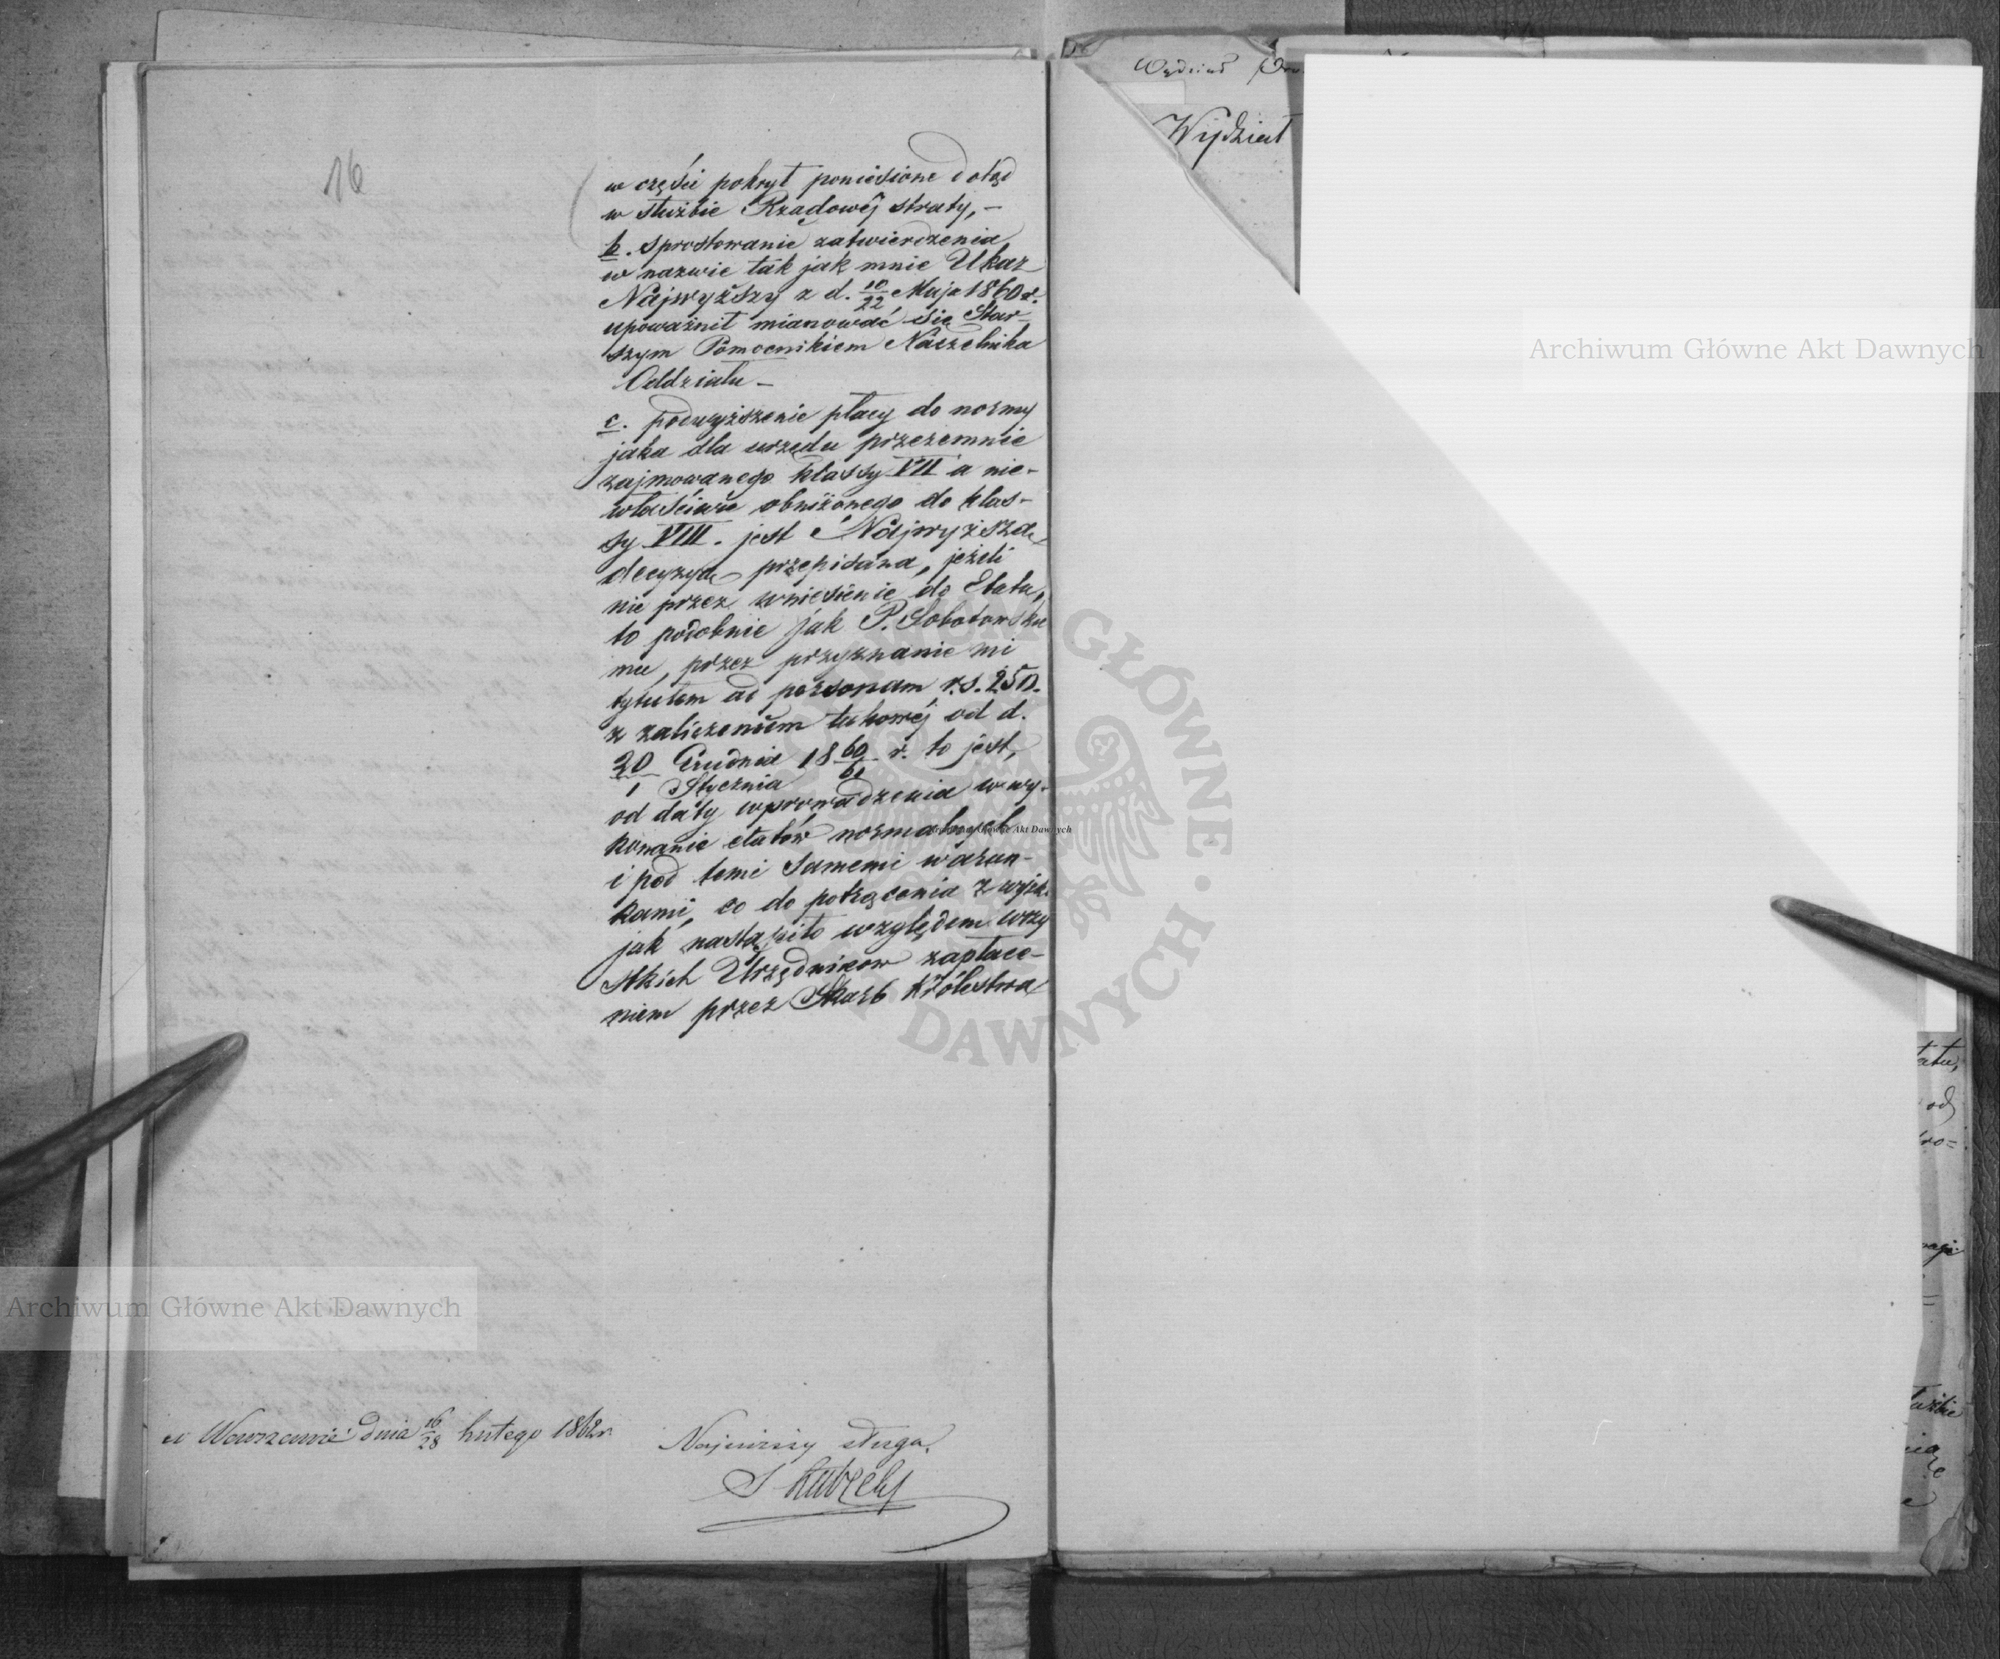 16
w części pokryt poniesione dotąd
w służbie Rządowéj straty, —
b. sprostowanie zatwierdzenia
w nazwie tak jak mnie Ukaz
Najwyższy z d. 10/22 Maja 1860 r.
upoważnił mianować się Star-
szym Pomocnikiem Naczelnika
Oddziału —
c. podwyższenie płacy do normy
jaka dla urzędu przezemnie
zajmowanego klassy VII a nie-
właściwie obniżonego do klas-
sy VIII. jest Najwyższą
decyzyą przepisana, jeżeli
nie przez wniesienie do Etatu,
to podobnie jak P. Sobotowskie
mu, przez przyznanie mi
tytułem ad personam r.s. 250.
z zaliczeniem takowéj od d.
20 Grudnia 1860 r. to jest,
1 Stycznia 61
od daty wprowadzenia w wy-
konanie etatów normalnych
i pod temi samemi warun-
kami, co do potrącenia z wyżek
jak nastąpiło względem wszy
stkich Urzędników zapłace-
niem przez Skarb Królestwa
w Warszawie dnia 16/28 Lutego 1862 r.
Najniższy sługa,
Wydział
Wydział
tatu,
od
ro=
użbie
Archiwum Główne Akt Dawnych
Archiwum Główne Akt Dawnych
Archiwum Główne Akt Dawnych
GŁÓWNE
DAWNYCH